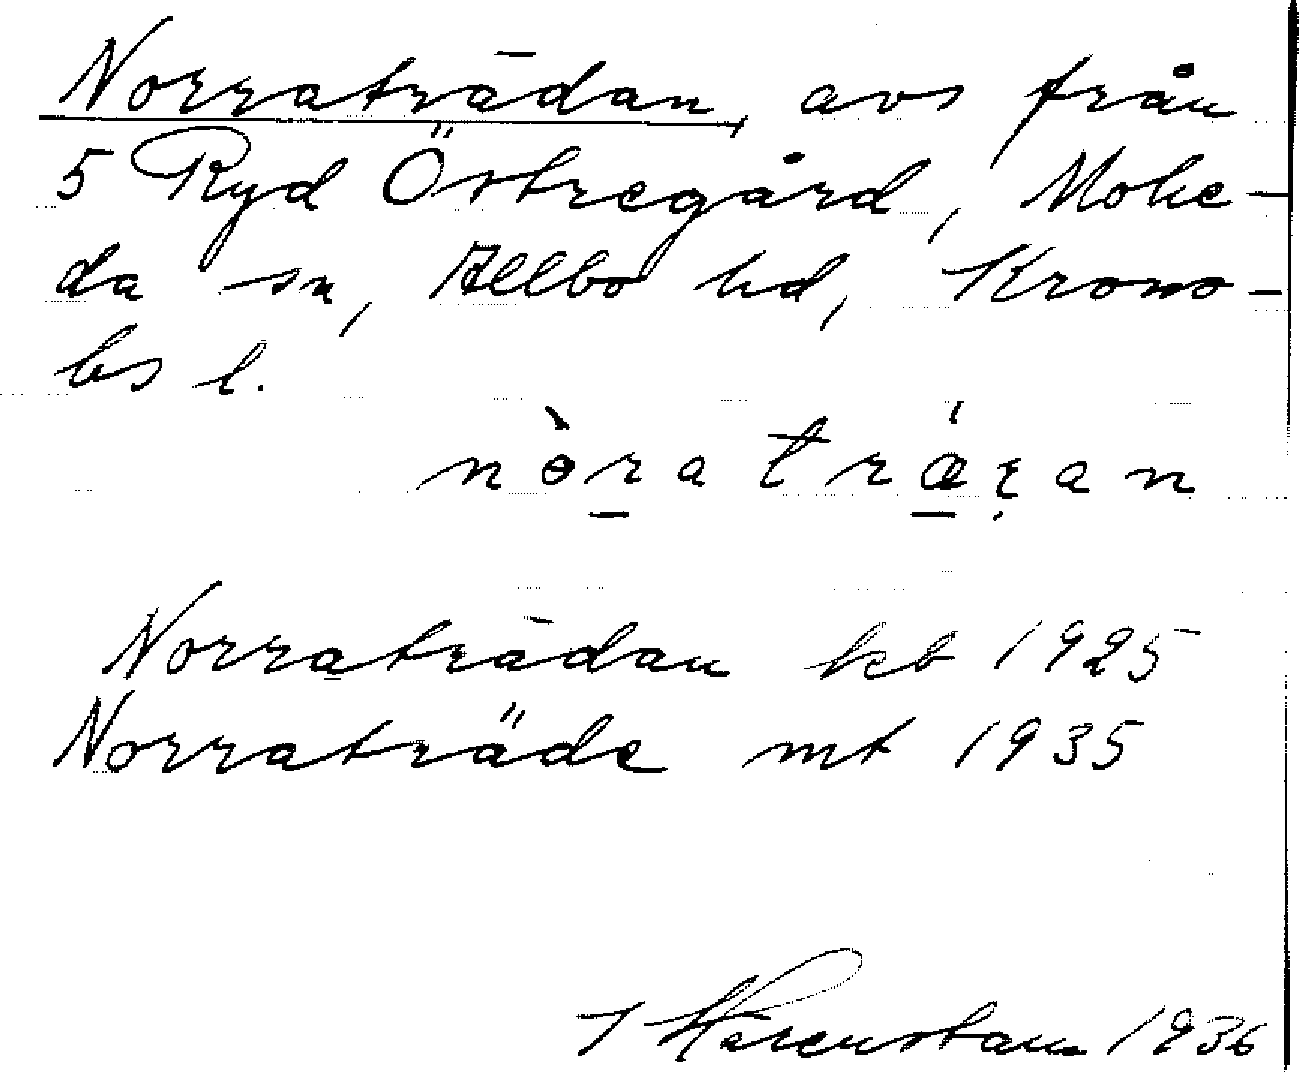 Norraträdan, avs från
5 Ryd Östregård, Mohe-
da sn, Allbo hd, Krono-
bs l.
nòra træ̀ʀan
Norraträdan kb 1925
Norraträde mt 1935
1936